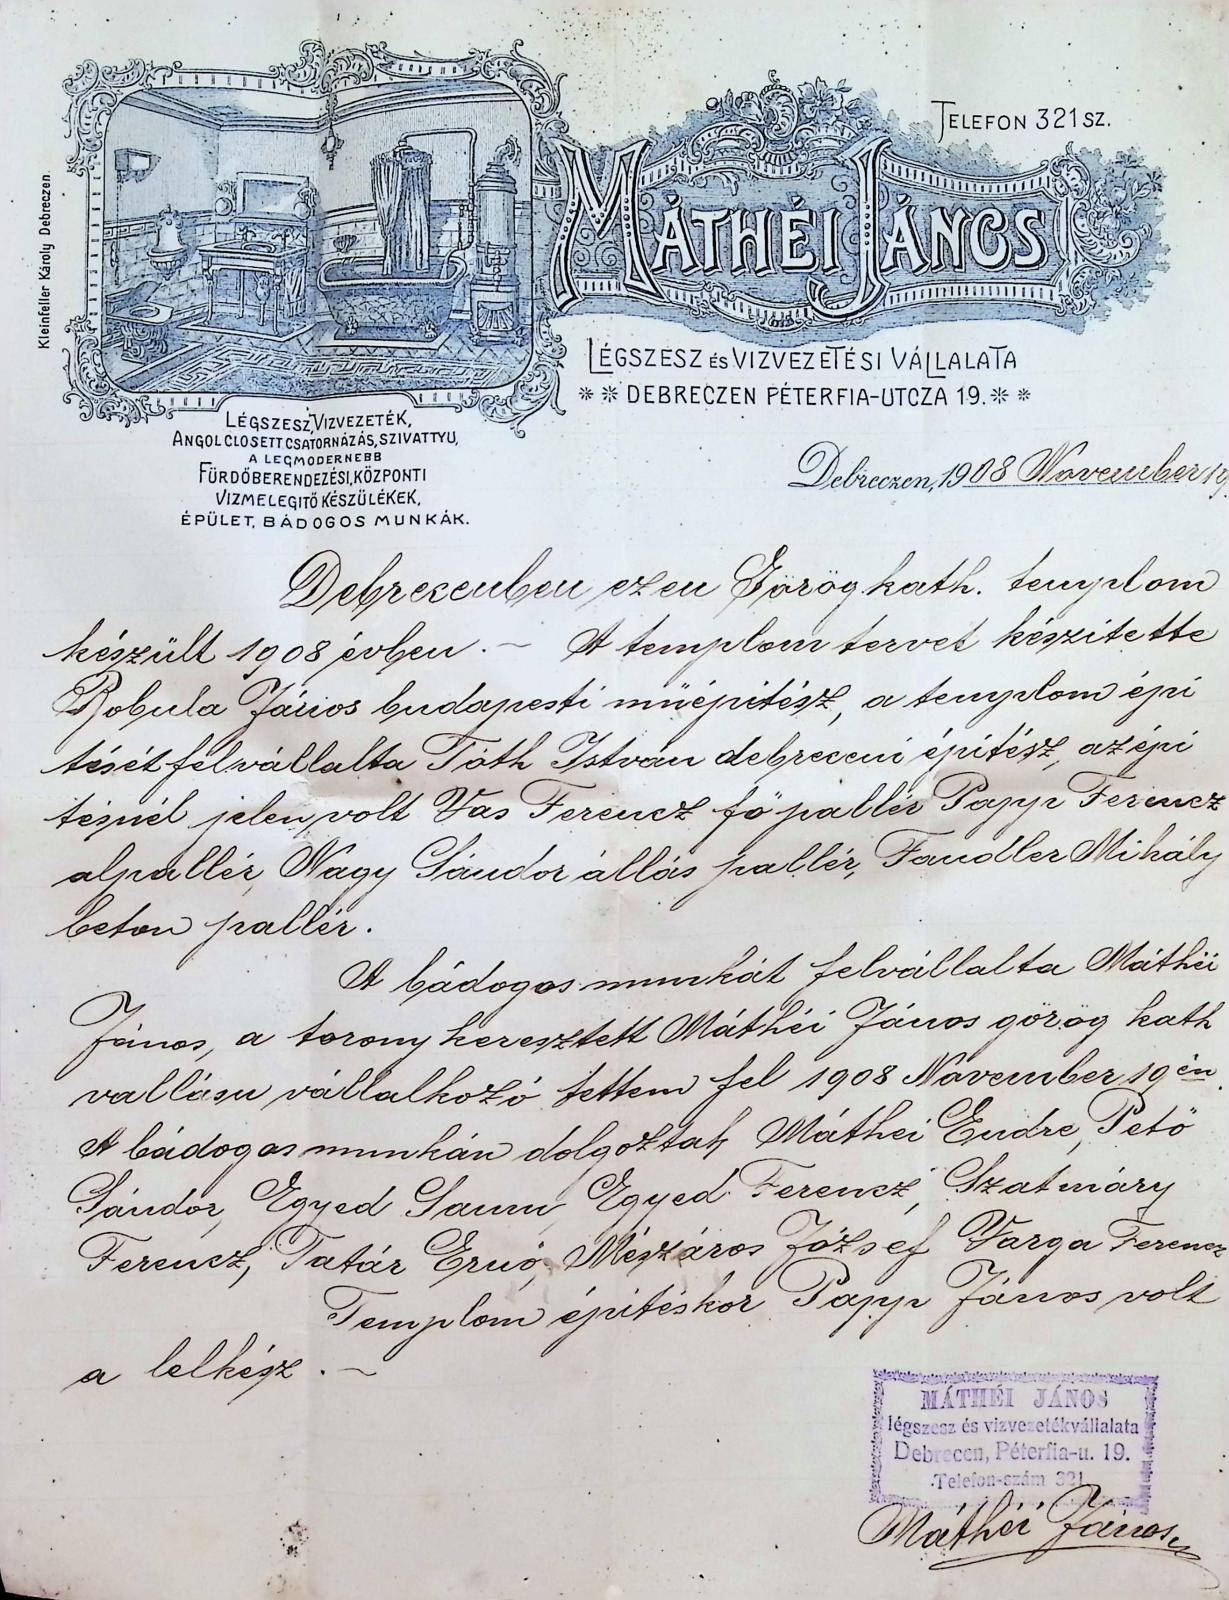 Kleinfeller Károly Debreczen.
TELEFON 321 SZ.
MÁTHÉI JÁNOS
LÉGSZESZ ÉS VIZVEZETÉSI VÁLLALATA
DEBRECZEN PÉTERFIA-UTCZA 19.
LÉGSZESZ, VIZVEZETÉK,
ANGOL CLOSETT CSATORNÁZÁS, SZIVATTYU,
A LEGMODERNEBB
FÜRDŐBERENDEZÉSI, KÖZPONTI
VIZMELEGITŐ KÉSZÜLÉKEK,
ÉPÜLET, BÁDOGOS MUNKÁK.
Debreczen, 1908 November 19.
Debrecenben ezen Görög kath. templom
készült 1908 évben. — A templom tervet készitette
Bobula János budapesti müépitész, a templom épi
tését felvállalta Tóth István debreceni épitész, az épi
tésnél jelen volt Vas Ferencz fő pallér Papp Ferencz
alpallér, Nagy Sándor állás pallér, Fandler Mihály
beton pallér.
A bádogos munkát felvállalta Máthéi
János, a torony keresztett Máthéi János görög kath
vallásu vállalkozó tettem fel 1908 November 19 én.
A bádogos munkán dolgoztak Máthéi Endre, Pető
Sándor, Egyed Samu, Egyed Ferencz, Szatmáry
Ferencz, Tatár Ernő, Mészáros József Varga Ferencz
Templom épitéskor Papp János volt
a lelkész. —
MÁTHÉI JÁNOS
légszesz és vizvezetékvállalata
Debrecen, Péterfia-u. 19.
Telefon-szám 321
Máthéi János